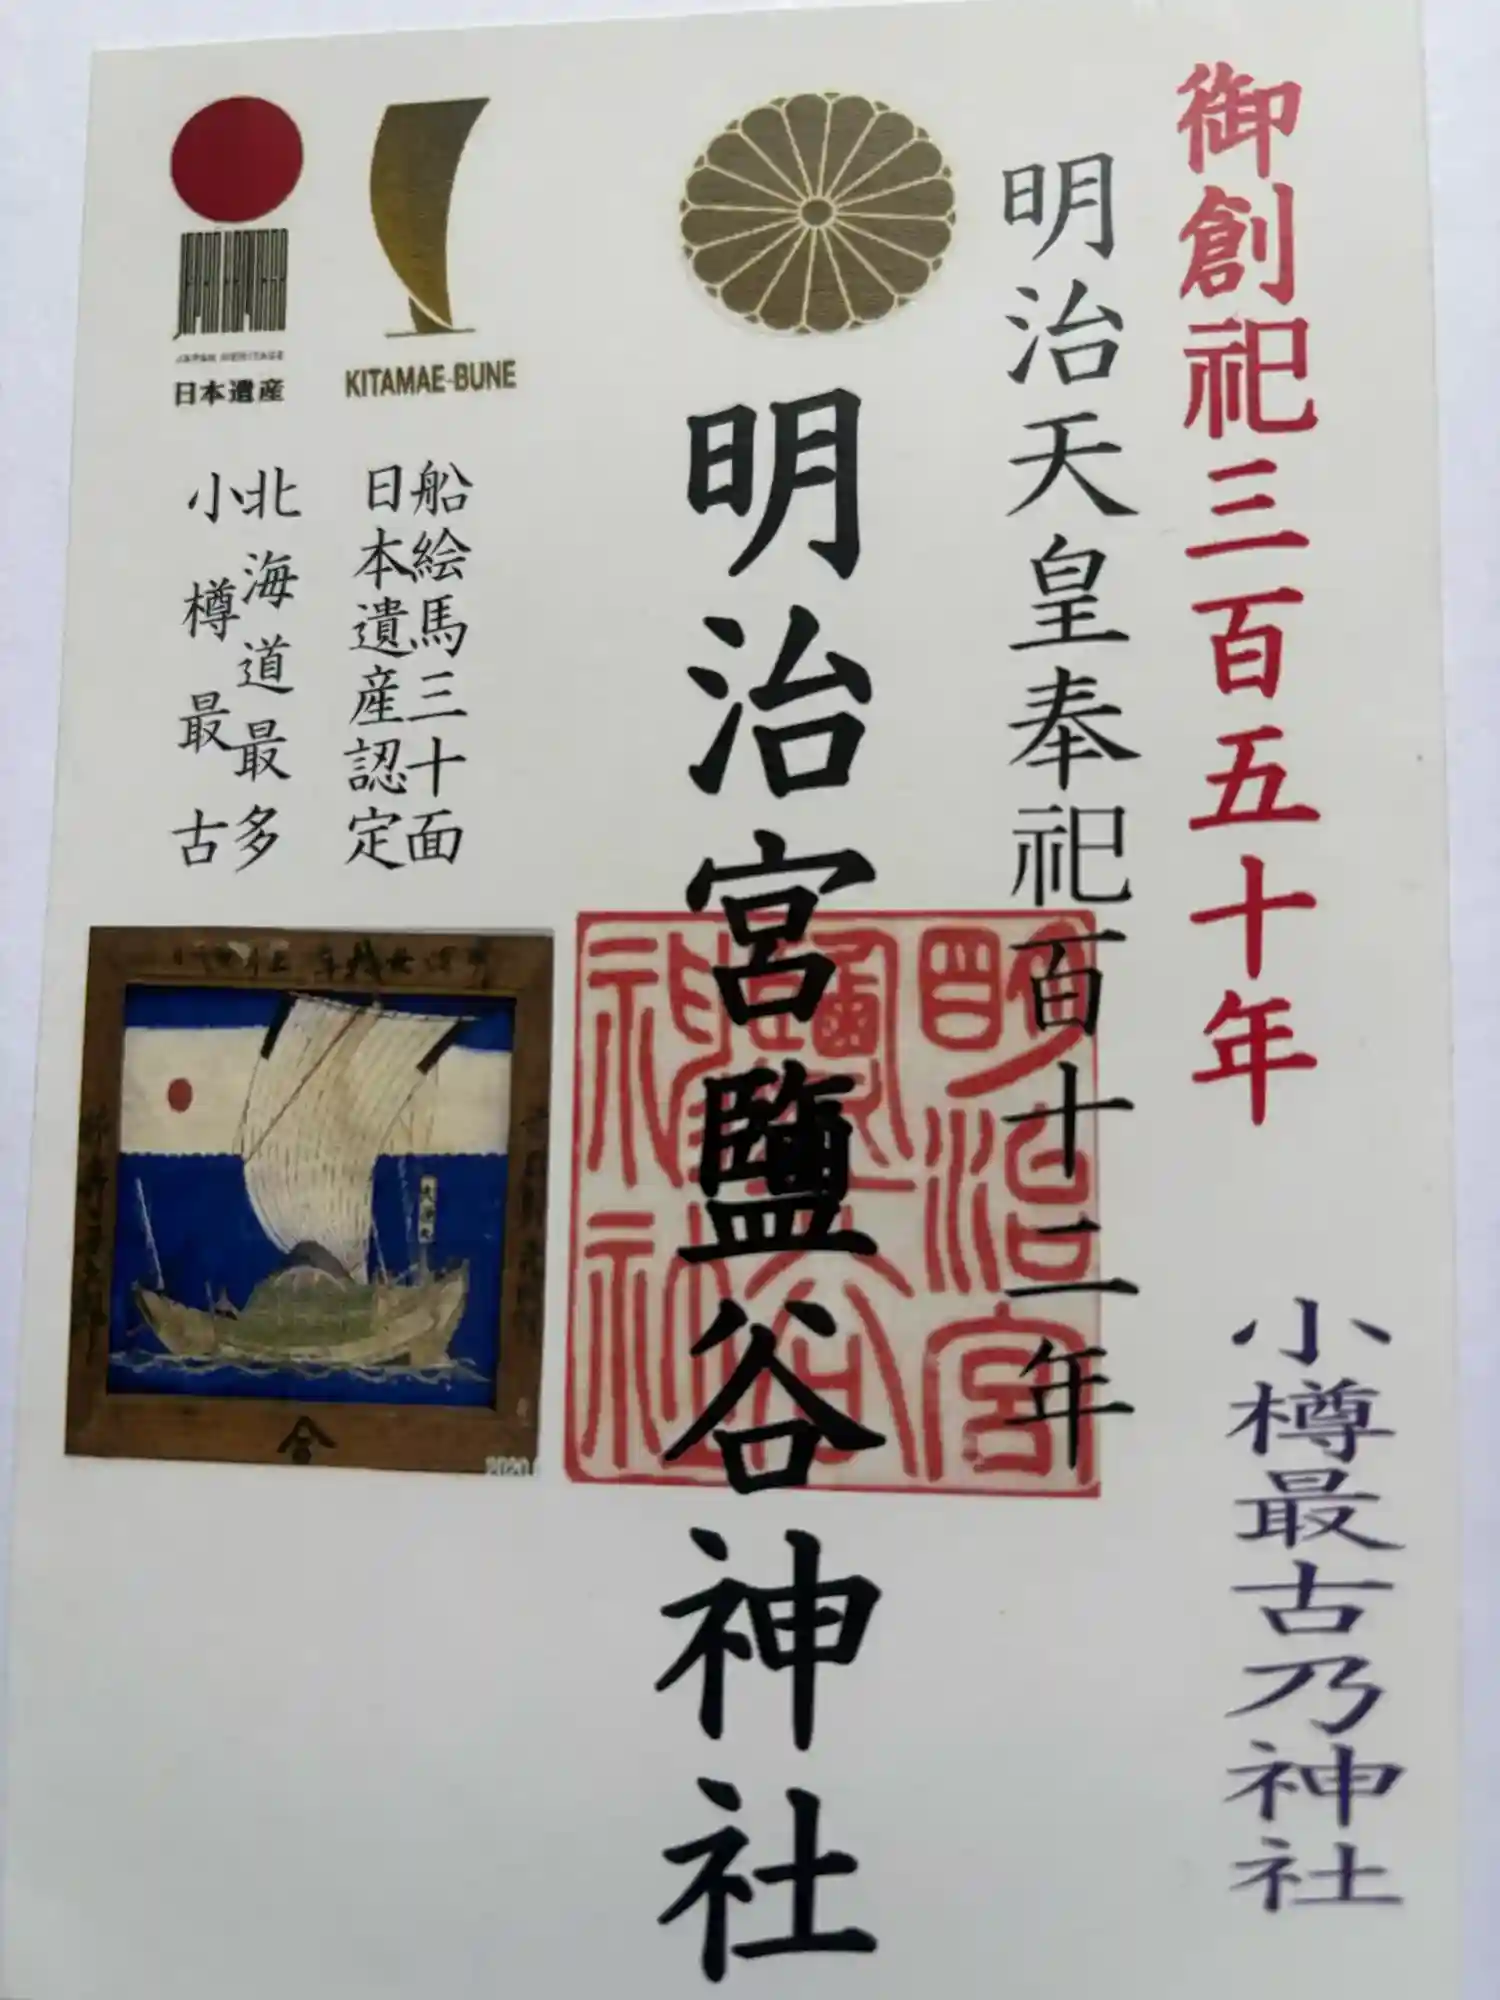 御創祀三百五十年
小樽最古乃神社
明治天皇奉祀百十二年
明治宮鹽谷神社
明治宮
鹽谷
神社
KITAMAE-BUNE
船絵馬三十面
日本遺産認定
JAPAN HERITAGE
日本遺産
北海道最多
小樽最古
2020